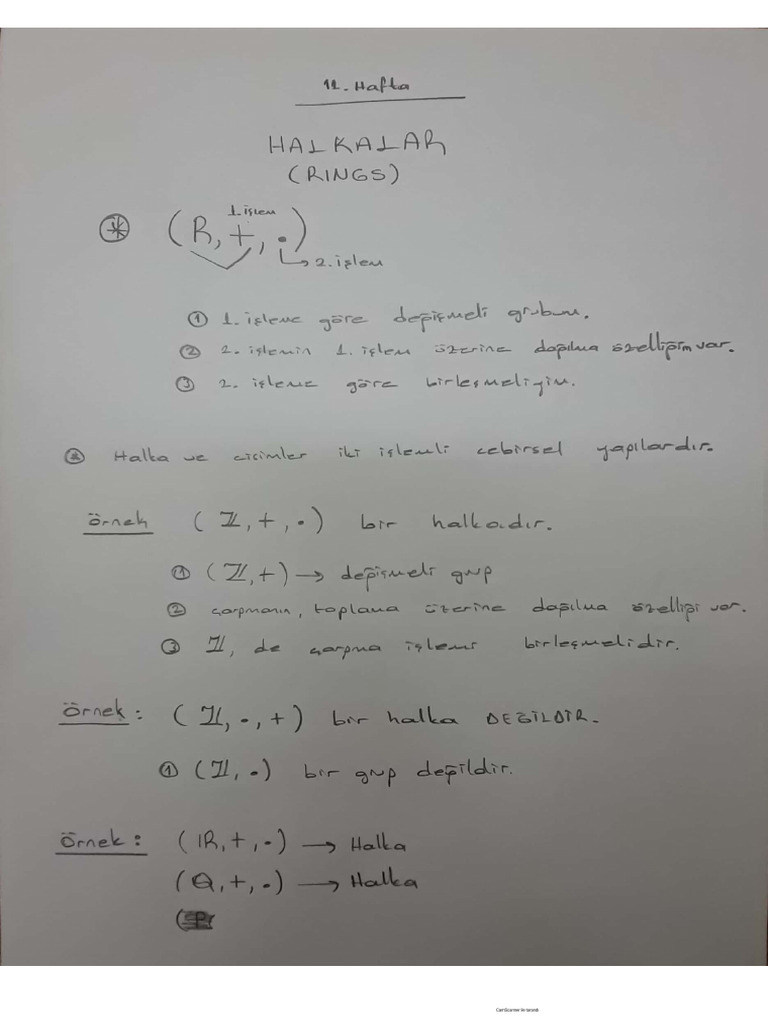 11. Hafta
HALKALAR
(RINGS)
1.işlem
⊛ (R, +, •)
→ 2. işlem
① 1. işleme göre değişmeli grubum.
② 2. işlemin 1. işlem üzerine dağılma özelliğim var.
③ 2. işleme göre birleşmeliyim.
⊛ Halka ve cisimler iki işlemli cebirsel yapılardır.
Örnek (ℤ, +, •) bir halkadır.
① (ℤ, +) → değişmeli grup
② çarpmanın, toplama üzerine dağılma özelliği var.
③ ℤ, de çarpma işlemi birleşmelidir.
Örnek : (ℤ, •, +) bir halka DEĞİLDİR.
① (ℤ, •) bir grup değildir.
Örnek : (ℝ, +, •) → Halka
(ℚ, +, •) → Halka
(
CamScanner ile tarandı